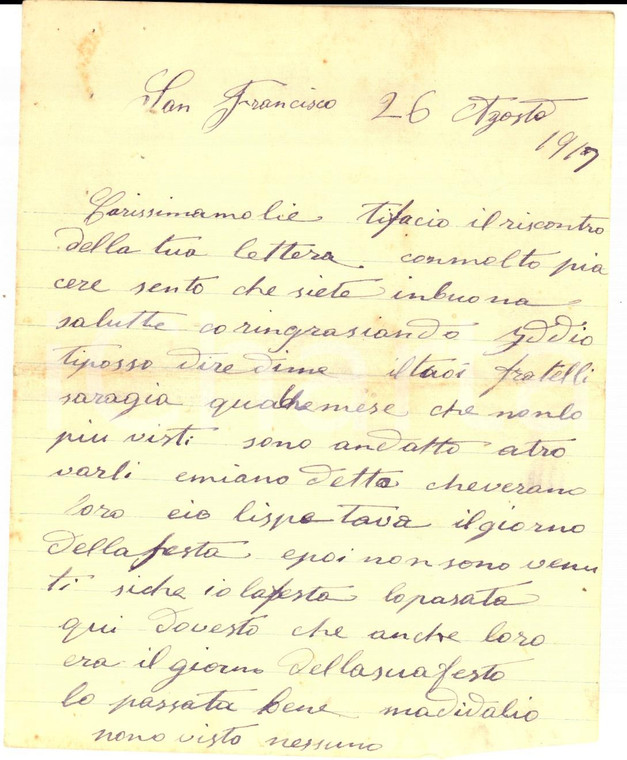 San Francisco 26 Agosto
1917
Carissimamolie tifacio ilriscontro
della tua lettera conmolto pia
cere sento che siete inbuona
salutte coringrasiando yddio
tiposso diredime iltuoi fratelli
saragia qualchemese che nonlo
piu visti sono andatto atro
varli emiano detto cheverano
loro eio lispetava ilgiorno
dellafesta epoi non sono venu
ti siche iolafesta lopasata
qui dovesto che anche loro
era ilgiorno dellasuafesto
lo passata bene madidalio
nono visto nessuno